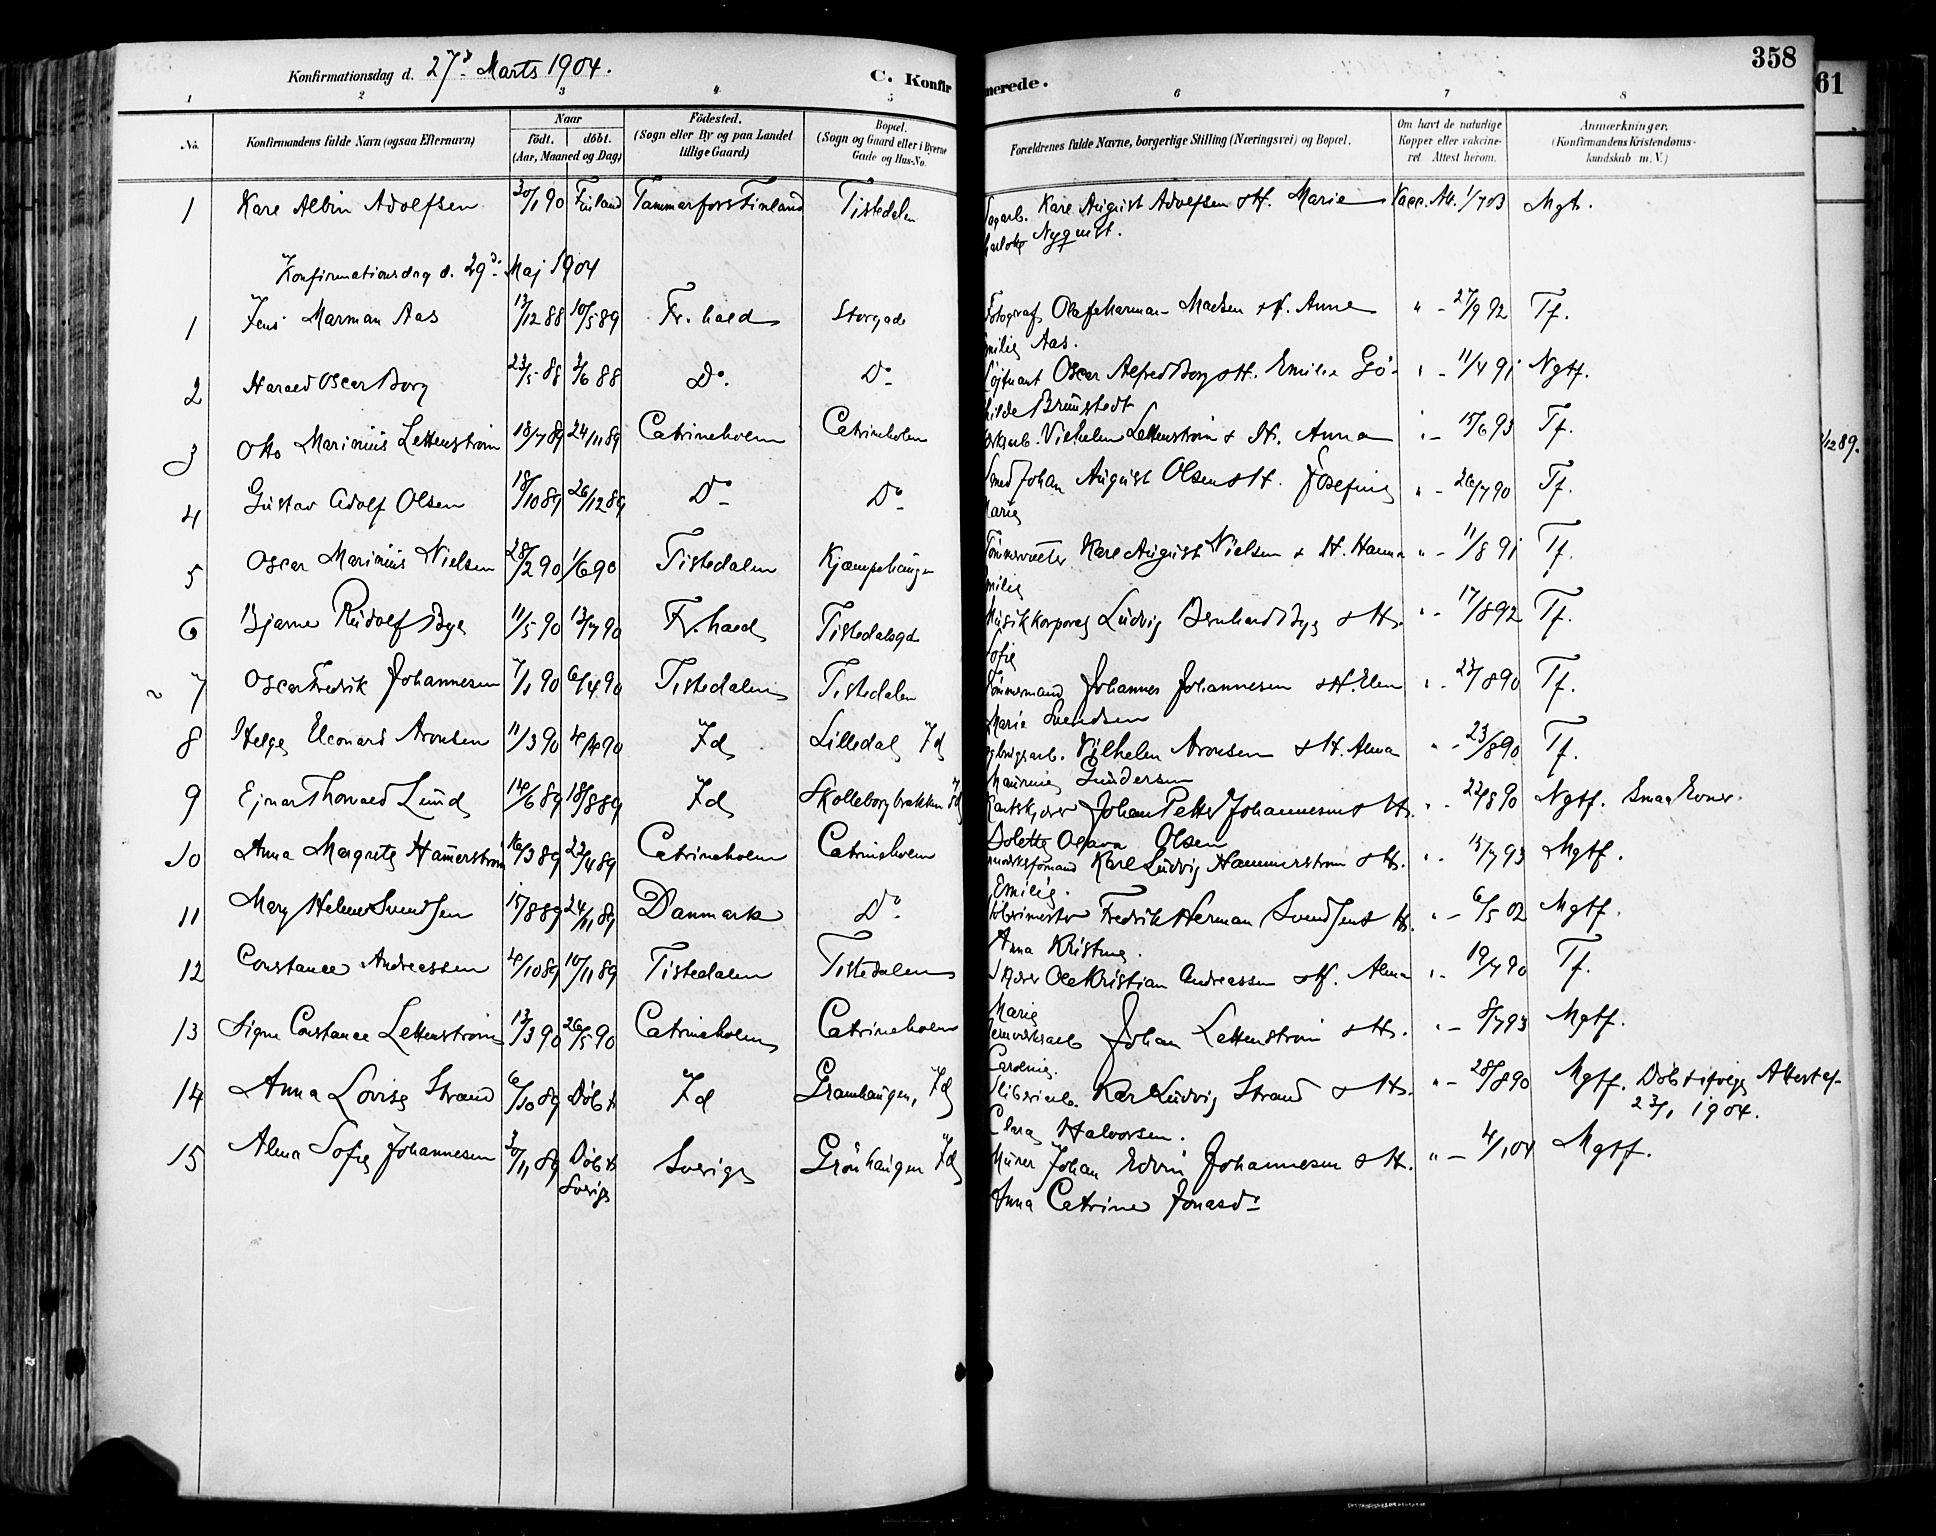 358
61
Konfirmationsdag d. 27d Marts 1904.
C. Konfirmerede.
1 2 3 4 5 6 7 8
No.
Konfirmandens fulde Navn (ogsaa Efternavn)
Naar
født. døbt.
(Aar, Maaned og Dag)
Födested.
(Sogn eller By og paa Landet
tillige Gaard)
Bopæl.
(Sogn og Gaard eller i Byerne
Gade og Hus-No.
Forældrenes fulde Navne, borgerlige Stilling (Næringsvei) og Bopæl.
Om havt de naturlige
Kopper eller vakcine-
ret. Attest herom.
Anmærkninger.
(Konfirmandens Kristendoms-
kundskab m. V.)
1 Karl Albin Adolfsen 30/1 90 Finland Tammerfors Finland Tistedalen Karl August Adolfsen & H. Marie Vacc. Att. 1/7 03 Mgt.
Nyquist.
Konfirmationsdag d. 29d Maj 1904
1 Jens Marman Aas 13/12 88 10/5 89 Fr.hald Storgad Fotograf Olaf Marman Madsen & H. Anne " - 27/9 92 Tf.
Emilie Aas.
2 Harald Oscar Borg 23/5 88 3/6 88 Do. Do Løjtnant Oscar Alfred Borg & H. Emilie Gö- " - 11/4 91 Ngtf.
hilde Brünstedt
3 Otto Marinius Lettenström 18/7 89 24/11 89 Catrineholm Catrineholm Vilhelm Lettenström & H. Anna " - 15/6 93 Tf.
4 Gustav Adolf Olsen 18/10 89 26/12 89 Do Do Smed Johan August Olsen & H. Josefine " - 26/7 90 Tf.
Marie
5 Oscar Marinius Nielsen 28/2 90 1/6 90 Tistedalen Kjæmpehaugen Karl August Nielsen & H. Hanna " - 11/8 91 Tf.
Emilie
6 Bjarne Rudolf Bye 11/5 90 13/7 90 Fr.hald Tistedalsgd Musikkorporal Ludvig Bernhard Bye & H. " - 17/8 92 Tf.
Sofie
7 Oscar Fredrik Johannesen 7/1 90 6/4 90 Tistedalen Tistedalen Tömmermand Johannes Johannesen & H. Elen " - 23/8 90 Tf.
Marie Svendsen
8 Helge Eleonard Aronsen 11/3 90 4/4 90 Id Lilledal Id Vilhelm Aronsen & H. Alma " - 23/8 90 Tf.
Gundersen
9 Ejnar Thorvald Lund 14/6 89 18/8 89 Id Skolleborgbakken Id Johan Petter Johannesen & H. " - 22/8 90 Ngtf. Smaa Evner.
Bolette Olava Olsen
10 Anna Margrete Hamerström 16/3 89 22/4 89 Catrineholm Catrineholm Karl Ludvig Hammerström & H. " - 15/7 93 Mgtf.
Emilie.
11 Mary Helene Svendsen 15/8 89 24/11 89 Danmark Do Fredrik Herman Svendsen & H. " - 6/5 02 Mgtf.
Anna Kristine.
12 Constance Andreassen 4/10 89 10/11 89 Tistedalen Tistedalen Ole Kristian Andreassen & H. Alma " - 19/7 90 Tf.
Marie
13 Signe Constance Lettenström 13/3 90 26/5 90 Catrineholm Catrineholm Johan Lettenström & H. " - 8/7 93 Mgtf.
Caroline.
14 Anna Lovise Strand 6/10 89 Döbt Id Granhaugen, Id Sliberiarb. Karl Ludvig Strand & H. " - 28/8 90 Mgtf. Döbt ifølge Attest af
Clara Halvorsen. 23/1 1904.
15 Alma Sofie Johannesen 30/11 89 Döbt Sverige Grönhaugen Id Murer Johan Edvin Johannesen & H. " - 4/1 04 Mgtf.
Sverige
Anna Catrine Jonasdr
/12 89.